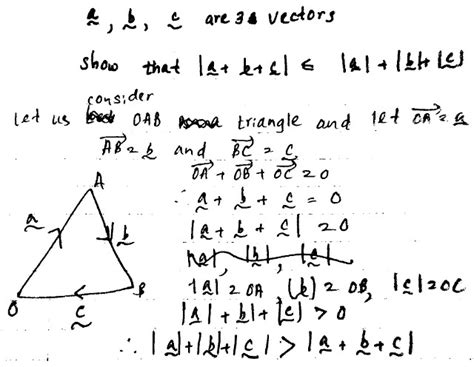 a, b, c are 3 vectors
show that |a + b + c| ≤ |a| + |b| + |c|
Let us consider OAB triangle and let OA = a
AB = b and BC = c
OA + OB + OC = 0
∴ a + b + c = 0
|a + b + c| = 0
|a|, |b|, |c|
|a| = OA, |b| = OB, |c| = OC
|a| + |b| + |c| > 0
∴ |a| + |b| + |c| > |a + b + c|
A
a
b
O
B
c